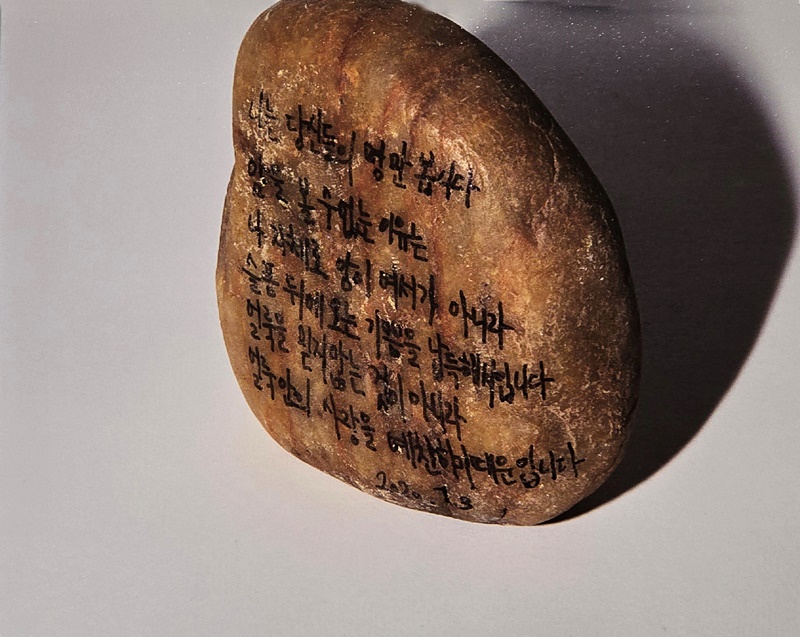 나는 당신들의 명만 봅니다
암을 볼 수 없는 이유는
낙 자체로 암이 여서가 아니라
슬픔 뒤에 오는 기쁨을 납득해서입니다
얼룩을 원치않는 것이 아니라
얼룩 안의 사랑을 예찬하기 때문입니다
2020. 7. 3